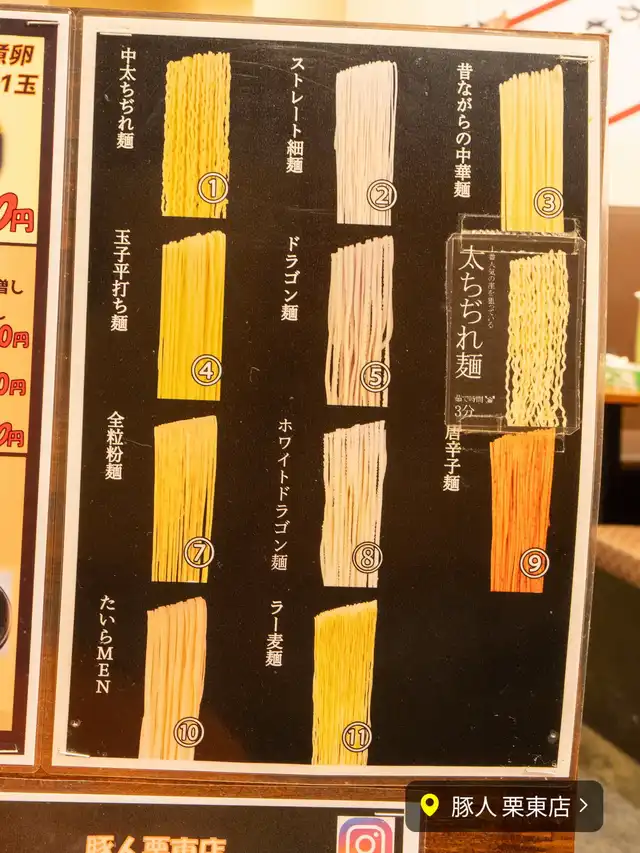 煮卵
1玉
0円
増し
0円
0円
0円
中太ちぢれ麺
①
ストレート細麺
②
昔ながらの中華麺
③
玉子平打ち麺
④
ドラゴン麺
⑤
太ちぢれ麺
茹で時間
3分
全粒粉麺
⑦
ホワイトドラゴン麺
⑧
唐辛子麺
⑨
たいらMEN
⑩
ラー麦麺
⑪
豚人栗東店
豚人 栗東店